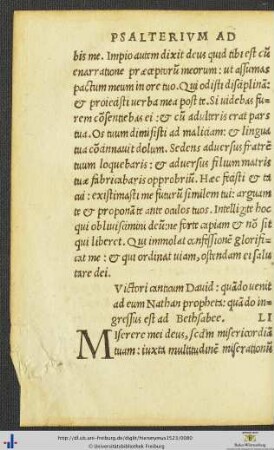 PSALTERIVM AD
bis me. Impio autem dixit deus quid tibi est cũ
enarratione præceptorũ meorum: ut assumas
pactum meum in ore tuo. Qui odisti disciplinā:
& proiecisti uerba mea post te. Si uidebas fu-
rem cõsentiebas ei: & cũ adulteris erat pars
tua. Os tuum dimisisti ad maliciam: & lingua
tua cõcinnauit dolum. Sedens aduersus fratrē
tuum loquebaris: & aduersus filium matris
tuæ fabricabaris opprobriũ. Hæc fecisti & ta
cui: existimasti me futurũ similem tui: arguam
te & proponā te ante oculos tuos. Intelligite hoc
qui obliuiscimini deũ: ne forte capiam & nõ sit
qui liberet. Qui immolat cõfessionē glorifi-
cat me: & qui ordinat uiam, ostendam ei salu
tare dei.
Victori canticum Dauid: quādo uenit
ad eum Nathan propheta: quādo in
gressus est ad Bethsabee. LI
Miserere mei deus, secũdm misericordiā
tuam: iuxta multitudinē miserationũ
http://dl.ub.uni-freiburg.de/diglit/hieronymus1523/0080
© Universitätsbibliothek Freiburg